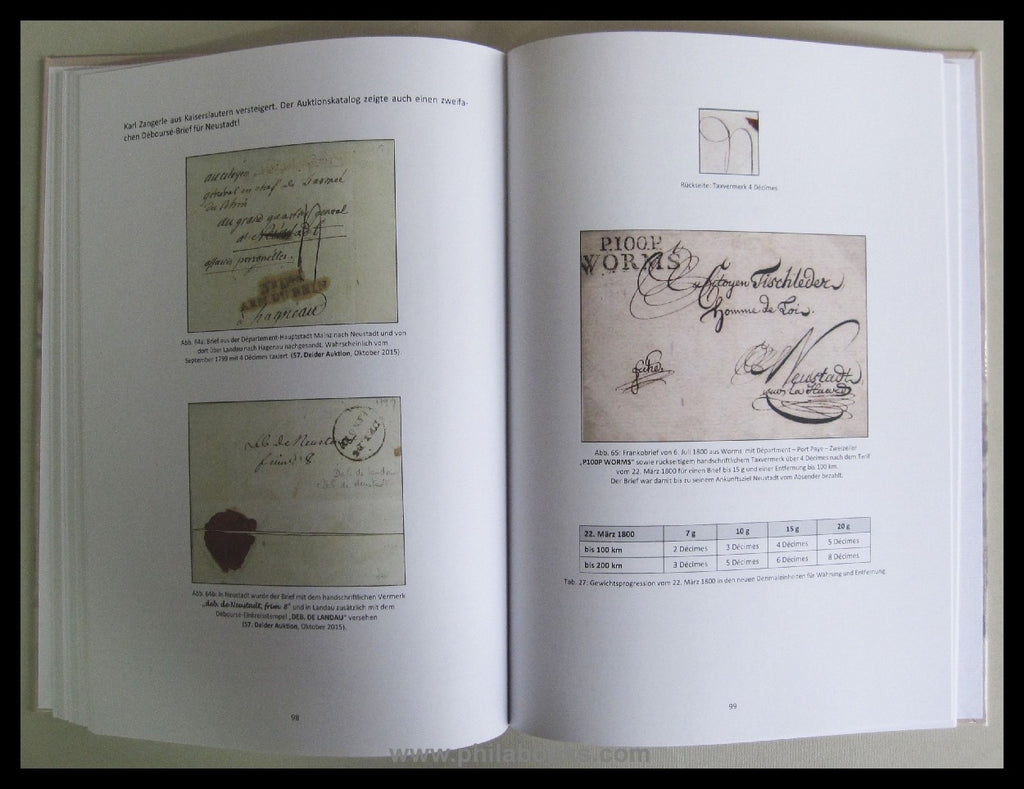 Karl Zangerle aus Kaiserslautern versteigert. Der Auktionskatalog zeigte auch einen zweifa-
chen Débourse-Brief für Neustadt!
au citoyen
général en chef de l'armée
du Rhin
au grand quartier general
affaires personelles.
à hagueau
Abb. 64a: Brief aus der Département-Hauptstadt Mainz nach Neustadt und von
dort über Landau nach Hagenau nachgesandt. Wahrscheinlich vom
September 1799 mit 4 Décimes taxiert (57. Deider Auktion, Oktober 2015).
Deb de Neusta
frim. 8.
Deb. de landau
Deb. de neustadt
Abb. 64b: In Neustadt wurde der Brief mit dem handschriftlichen Vermerk
„deb. de Neustadt, frim. 8" und in Landau zusätzlich mit dem
Débourse-Einkreisstempel „DEB. DE LANDAU" versehen
(57. Deider Auktion, Oktober 2015).
98
Rückseite: Taxvermerk 4 Décimes
P.100.P.
WORMS
Citoyen Tischleder
homme de Loi.
Neustadt
Abb. 65: Frankobrief von 6. Juli 1800 aus Worms mit Départment – Port Paye – Zweizeiler
„P100P WORMS" sowie rückseitigem handschriftlichem Taxvermerk über 4 Décimes nach dem Tarif
vom 22. März 1800 für einen Brief bis 15 g und einer Entfernung bis 100 km.
Der Brief war damit bis zu seinem Ankunftsziel Neustadt vom Absender bezahlt.
22. März 1800 7 g 10 g 15 g 20 g
bis 100 km 2 Décimes 3 Décimes 4 Décimes 5 Décimes
bis 200 km 3 Décimes 5 Décimes 6 Décimes 8 Décimes
Tab. 27: Gewichtsprogression vom 22. März 1800 in den neuen Dezimaleinheiten für Währung und Entfernung.
99
www.philabooks.com